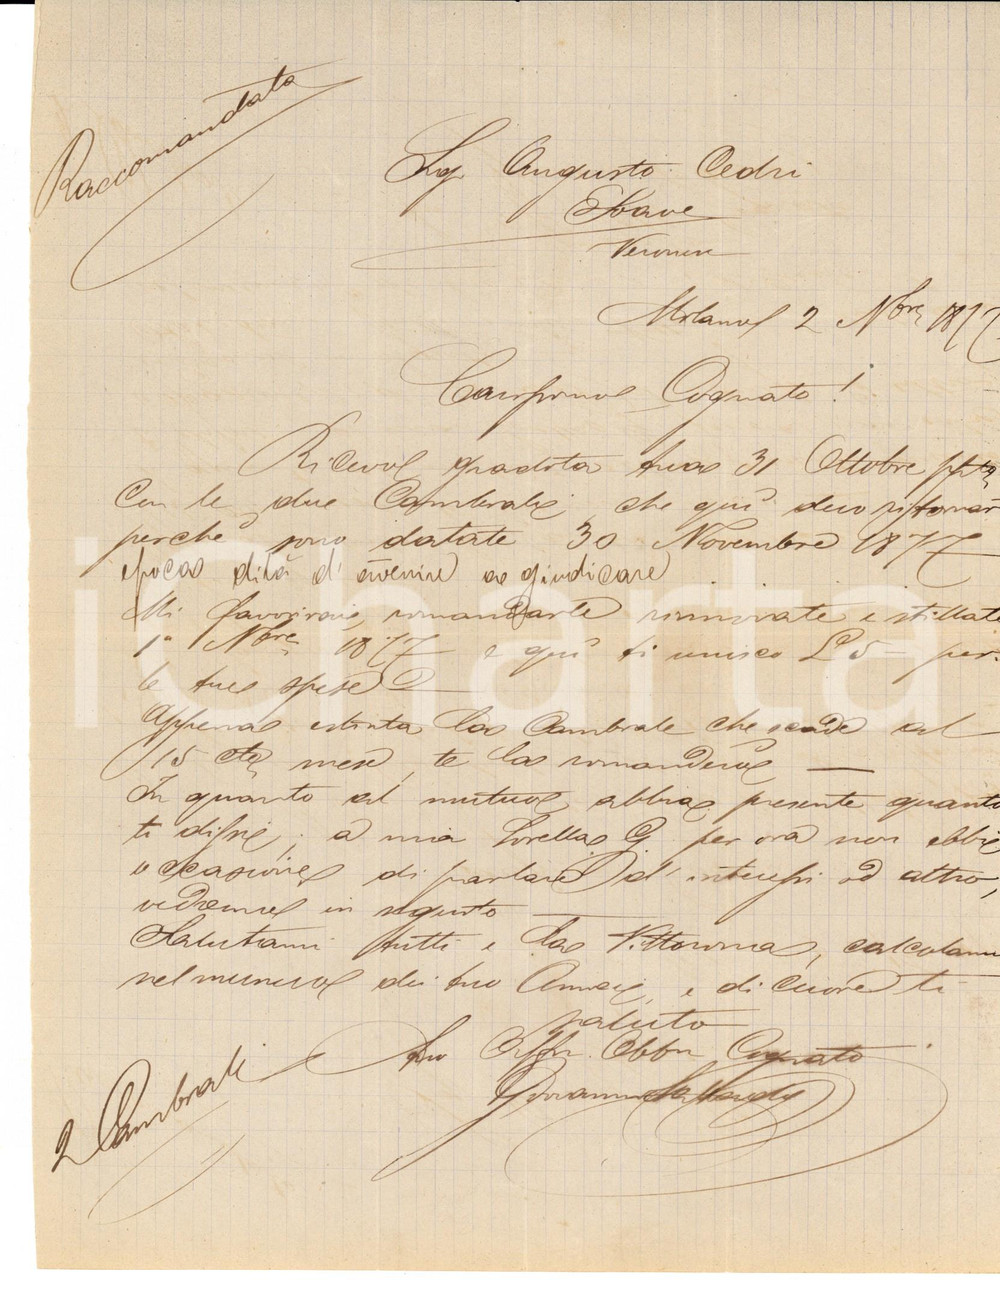 Raccomandata
Sig. Augusto Cedri
Soave
Verona
Milano 2 Nbre 1877
Carissimo Cognato!
Ricevo gradita tua 31 Ottobre
con le due Cambiali, che qui devo ritornar
perchè sono datate 30 Novembre 1877
epoca di là d'avenire a giudicare
Mi favorirai, rimandarle rinnovate e stillate
1° Nbre 1877 e qui ti unisco L 5 - per
le tue spese
Appena estinta la Cambiale che scade al
15 mese, te la rimanderò
In quanto al mutuo, abbia presente quanto
ti dissi; a mia Sorella G. per ora non ebbi
occasione di parlare d'interessi od altro,
vedremo in seguito
Salutami tutti e la Vittorina, calcolami
nel numero dei tuoi Amici, e di cuore ti
saluto
tuo Affmo Obbmo Cognato
Giovanni
2 Cambiali
iCharta